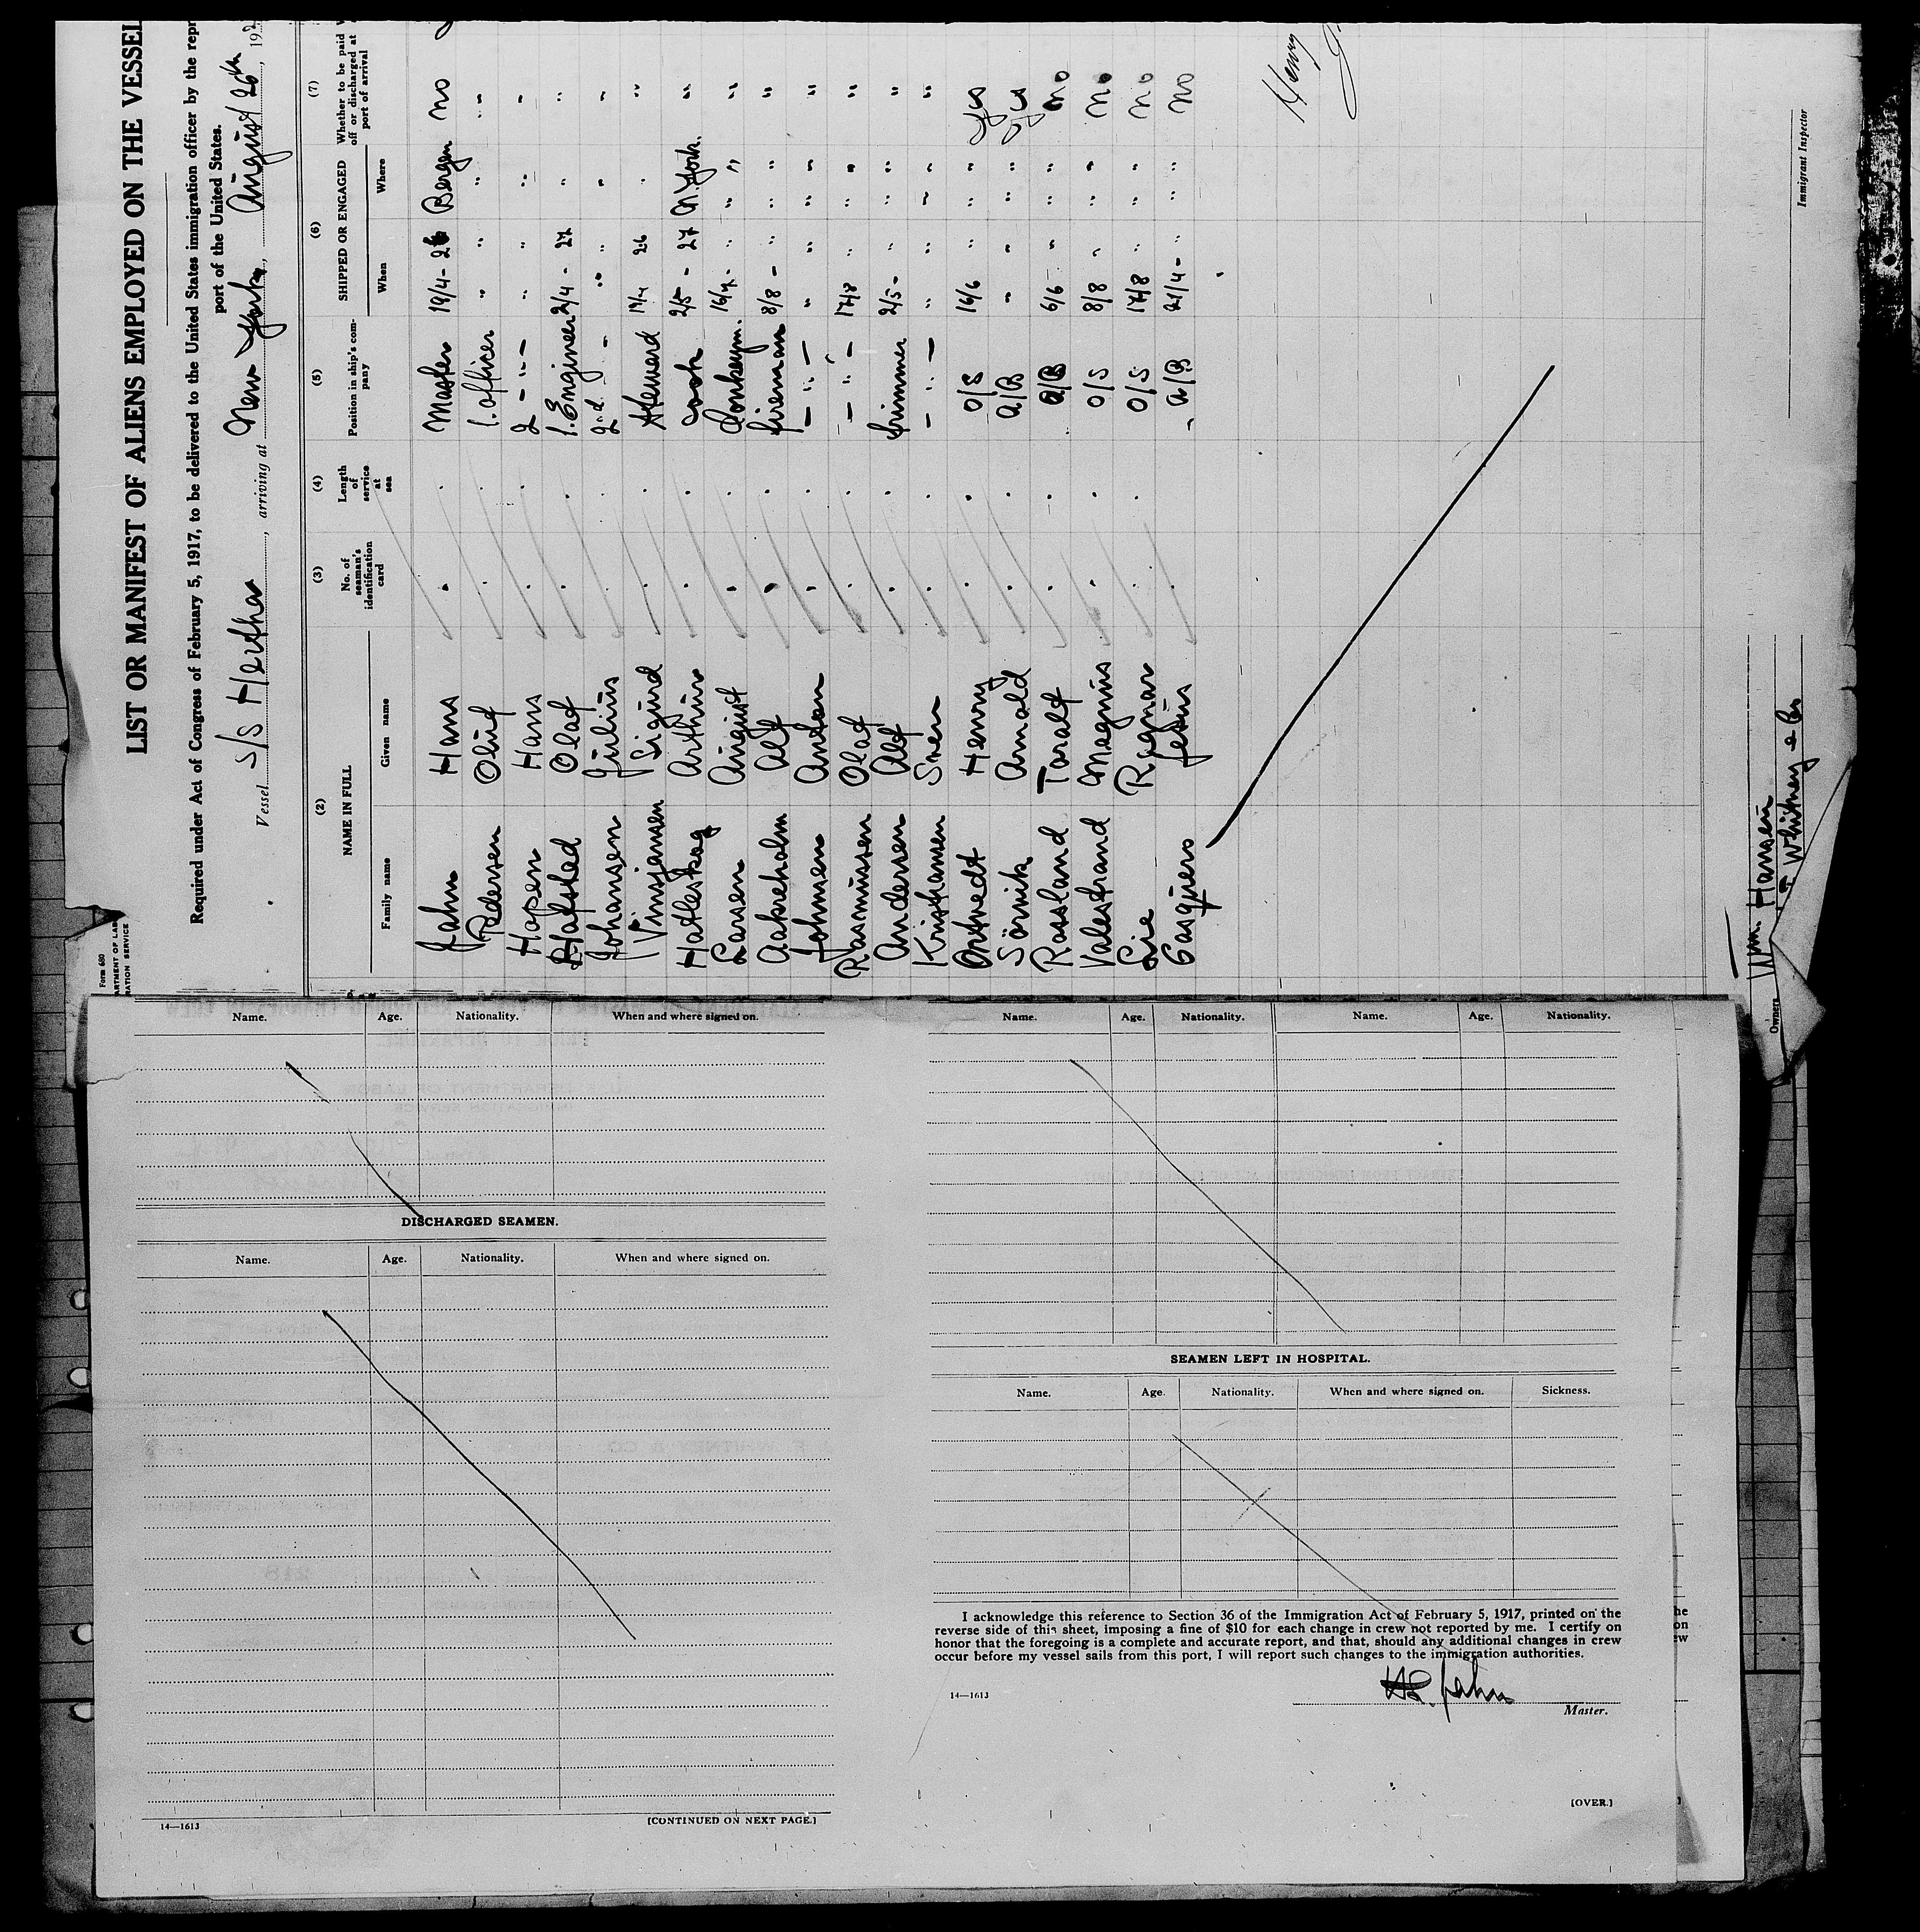 LIST OR MANIFEST OF ALIENS EMPLOYED ON THE VESSEL
Required under Act of Congress of February 5, 1917, to be delivered to the United States immigration officer by the repr
port of the United States.
Vessel S/S Hertha, arriving at New York, August 26th, 192
Form 680
ARTMENT OF LAB
RATION SERVICE
(2) (3) (4) (5) (6) (7)
NAME IN FULL No. of seaman's identification card Length of service at sea Position in ship's company SHIPPED OR ENGAGED Whether to be paid off or discharged at port of arrival
Family name Given name When Where
Jahn Hans Master 19/4-26 Bergen no
Pedersen Oluf 1. officer " " " "
Hopen Hans 2 - " - " " " "
Hafsted Olaf 1. Engineer 2/4 - 27 " "
Johansen Julius 2nd - " " " "
Vinsjansen Sigurd Steward 19/4 26 " "
Hatleskog Arthur cook 2/5 - 27 N.York. "
Larsen August Donkeym. 16/7- " " " "
Aakreholm Alf fireman 8/8 - " " " "
Johnsen Anton - " - " " " " "
Rasmussen Olaf - " - 17/8 " " " "
Andersen Alf trimmer 2/5- " " " "
Kristiansen Sven - " - " " " " "
Ostvedt Henry O/S 16/6 " " " yes
Sörnik Arnold A/B " " " " yes
Rossland Taralf A/B 6/6 " " " no
Valestrand Magnus O/S 8/8 " " " no
Lie Ragnar O/S 17/8 " " " no
Gasquero Jesus A/B 21/4- " " " no
Henry
Immigrant Inspector
Wm. Hansen
Whitney & Co
Owners
Name. Age. Nationality. When and where signed on.
DISCHARGED SEAMEN.
Name. Age. Nationality. When and where signed on.
14—1613
[CONTINUED ON NEXT PAGE.]
Name. Age. Nationality. Name. Age. Nationality.
SEAMEN LEFT IN HOSPITAL.
Name. Age. Nationality. When and where signed on. Sickness.
I acknowledge this reference to Section 36 of the Immigration Act of February 5, 1917, printed on the
reverse side of this sheet, imposing a fine of $10 for each change in crew not reported by me. I certify on
honor that the foregoing is a complete and accurate report, and that, should any additional changes in crew
occur before my vessel sails from this port, I will report such changes to the immigration authorities.
14—1613
Jahn
Master.
[OVER.]
he
on
ew